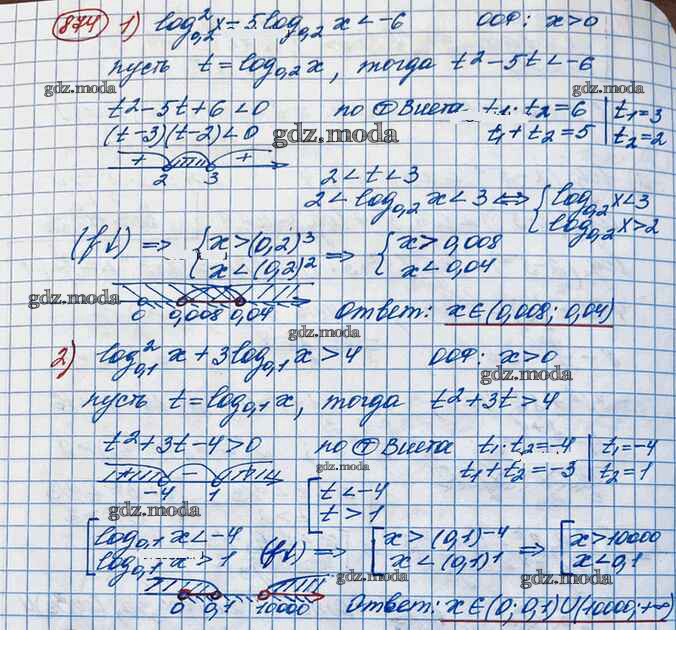 874 1) log²₀,₂ x - 5log₀,₂ x < -6 ООФ: x>0
gdz.moda
пусть t = log₀,₂ x, тогда t² - 5t < -6
gdz.moda
t² - 5t + 6 < 0 по Ⓣ Виета t₁·t₂ = 6 | t₁ = 3
(t-3)(t-2) < 0 gdz.moda t₁+t₂ = 5 | t₂ = 2
+ +
2 3 2 < t < 3
2 < log₀,₂ x < 3 ⟺ { log₀,₂ x < 3
log₀,₂ x > 2
(f↓) ⇒ { x > (0,2)³ ⇒ { x > 0,008
x < (0,2)² x < 0,04
gdz.moda
0 0,008 0,04 Ответ: x∈(0,008; 0,04)
gdz.moda
2) log²₀,₁ x + 3log₀,₁ x > 4 ООФ: x>0
gdz.moda
пусть t = log₀,₁ x, тогда t² + 3t > 4
t² + 3t - 4 > 0 по Ⓣ Виета t₁·t₂ = -4 | t₁ = -4
gdz.moda t₁+t₂ = -3 | t₂ = 1
+ - +
-4 1 [ t < -4
t > 1
gdz.moda
[ log₀,₁ x < -4 (f↓) ⇒ [ x > (0,1)⁻⁴ ⇒ [ x > 10000
log₀,₁ x > 1 x < (0,1)¹ x < 0,1
gdz.moda
0 0,1 10000 Ответ: x∈(0; 0,1)∪(10000; +∞)
gdz.moda